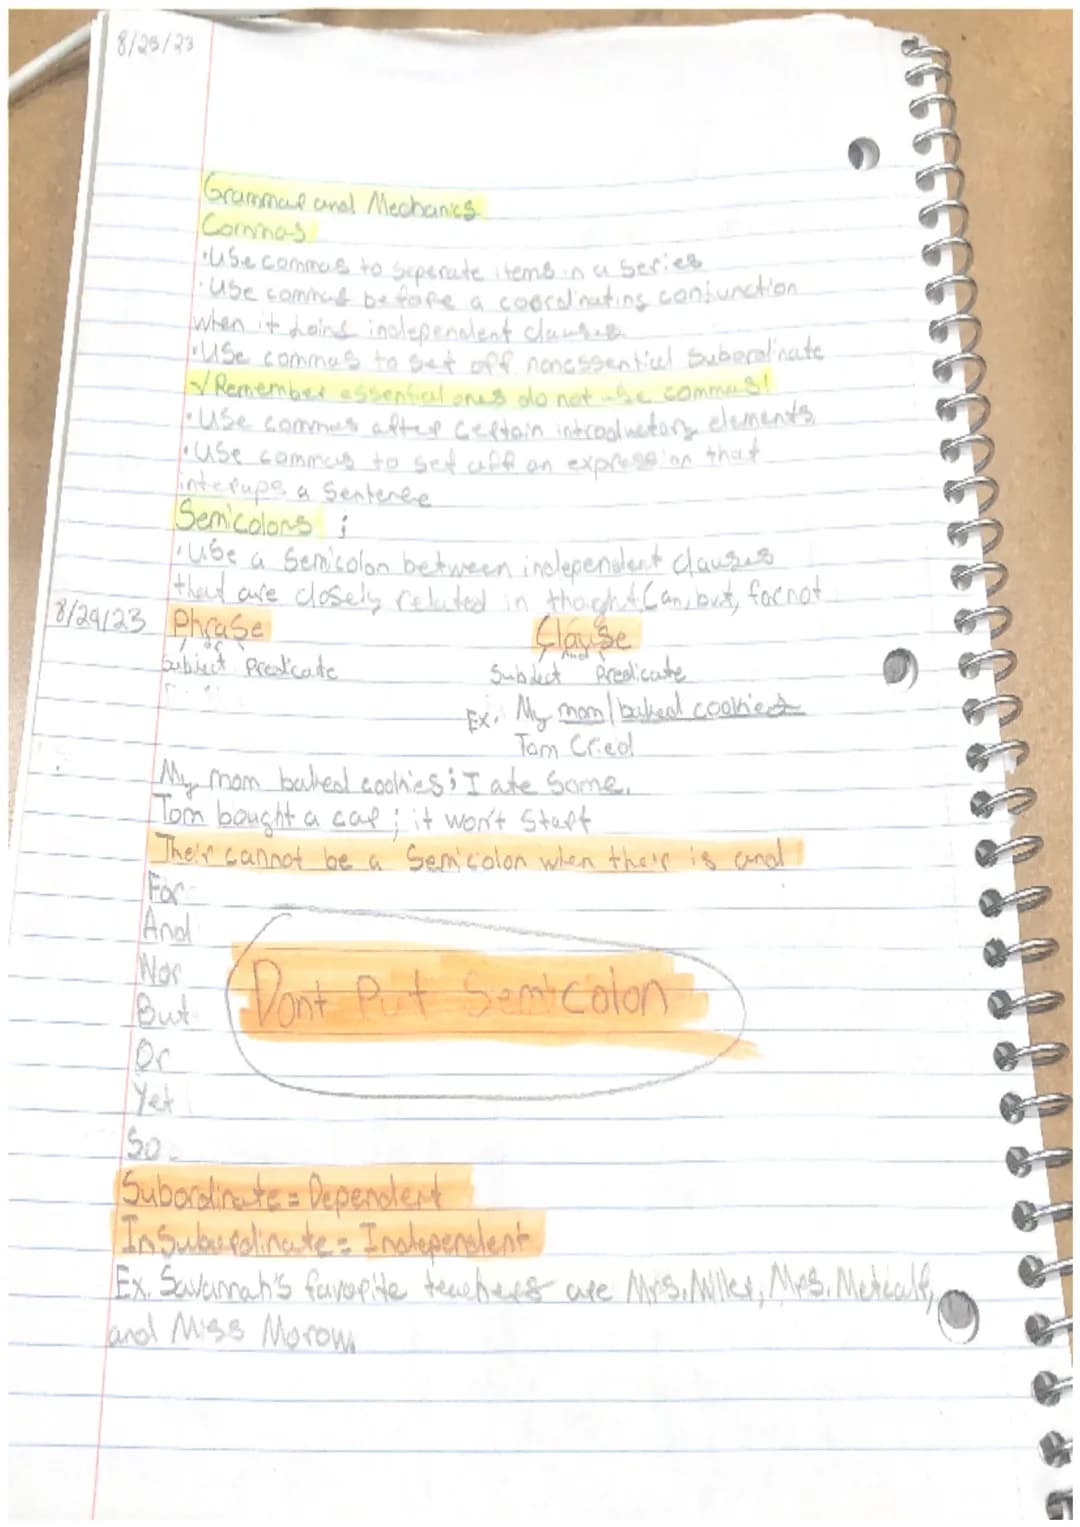 8/25/23
Grammar and Mechanics
Commas
• Use commas to seperate items in a series
• Use commas before a coordinating conjunction
when it joins independent clauses
• Use commas to set off nonessential subordinate
√ Remember essential ones do not use commas!
• Use commas after certain introductory elements.
• Use commas to set off an expression that
interups a sentence
Semicolons ;
• Use a semicolon between independent clauses
that are closely related in thought. Can, but, for not
8/29/23 Phrase Clause
or And
Subject Predicate Subject Predicate
Ex. My mom / baked cookies
Tom Cried
My mom baked cookies; I ate some.
Tom bought a car; it won't start
Their cannot be a Semicolon when their is and
For
And
Nor
But
Or
Yet
So
Dont Put Semicolon
Subordinate = Dependent
Insuburdinate = Independent
Ex. Savannah's favorite teachers are Mrs. Miller, Mrs. Metcalf,
and Miss Morow.